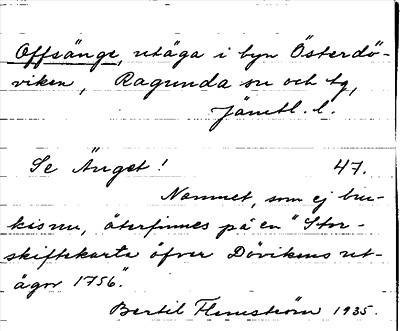 Offsänge, utäga i byn Österdö-
viken, Ragunda sn och tg,
Jämtl. l.
Se Änget! 47.
Namnet, som ej bru-
kis nu, återfinnes på en "Stor-
skifteskarta öfver Dövikens ut-
ägor 1756".
Bertil Flemström 1935.